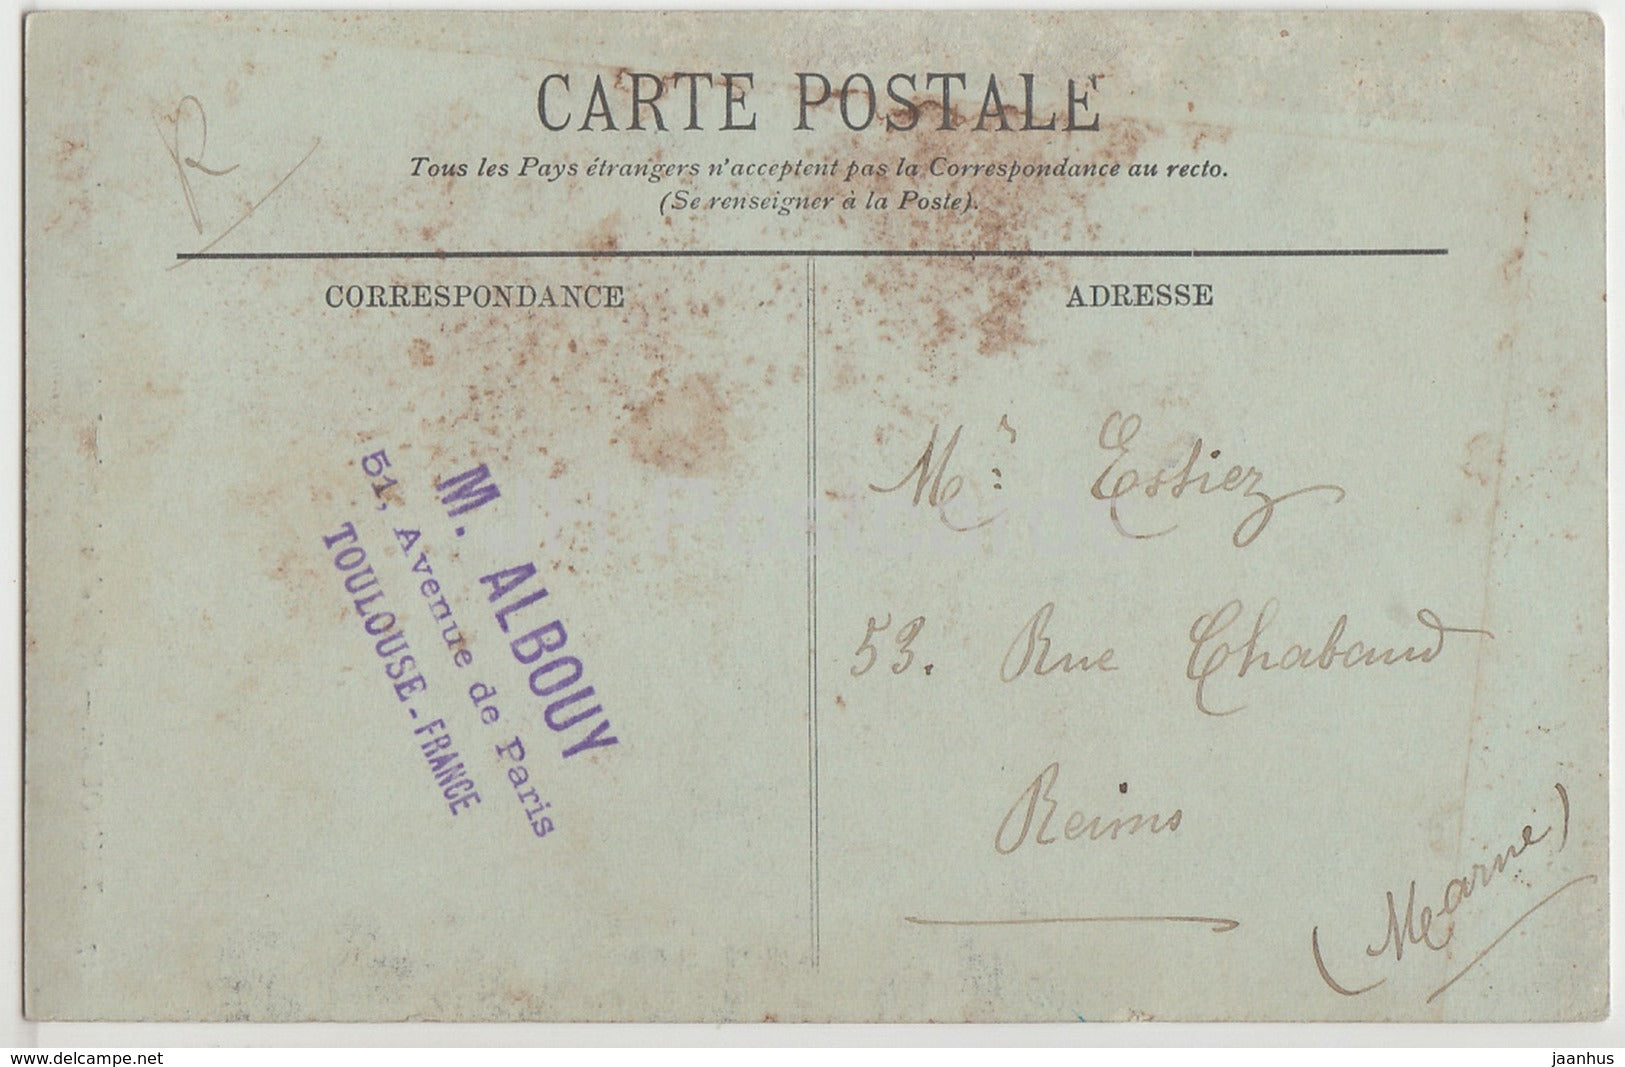 CARTE POSTALE
Tous les Pays étrangers n'acceptent pas la Correspondance au recto.
(Se renseigner à la Poste).
R
CORRESPONDANCE
ADRESSE
M. ALBOUY
51, Avenue de Paris
TOULOUSE-FRANCE
Mr: Estiez
53. Rue Chabaud
Reims
(Marne)
www.delcampe.net
jaanhus